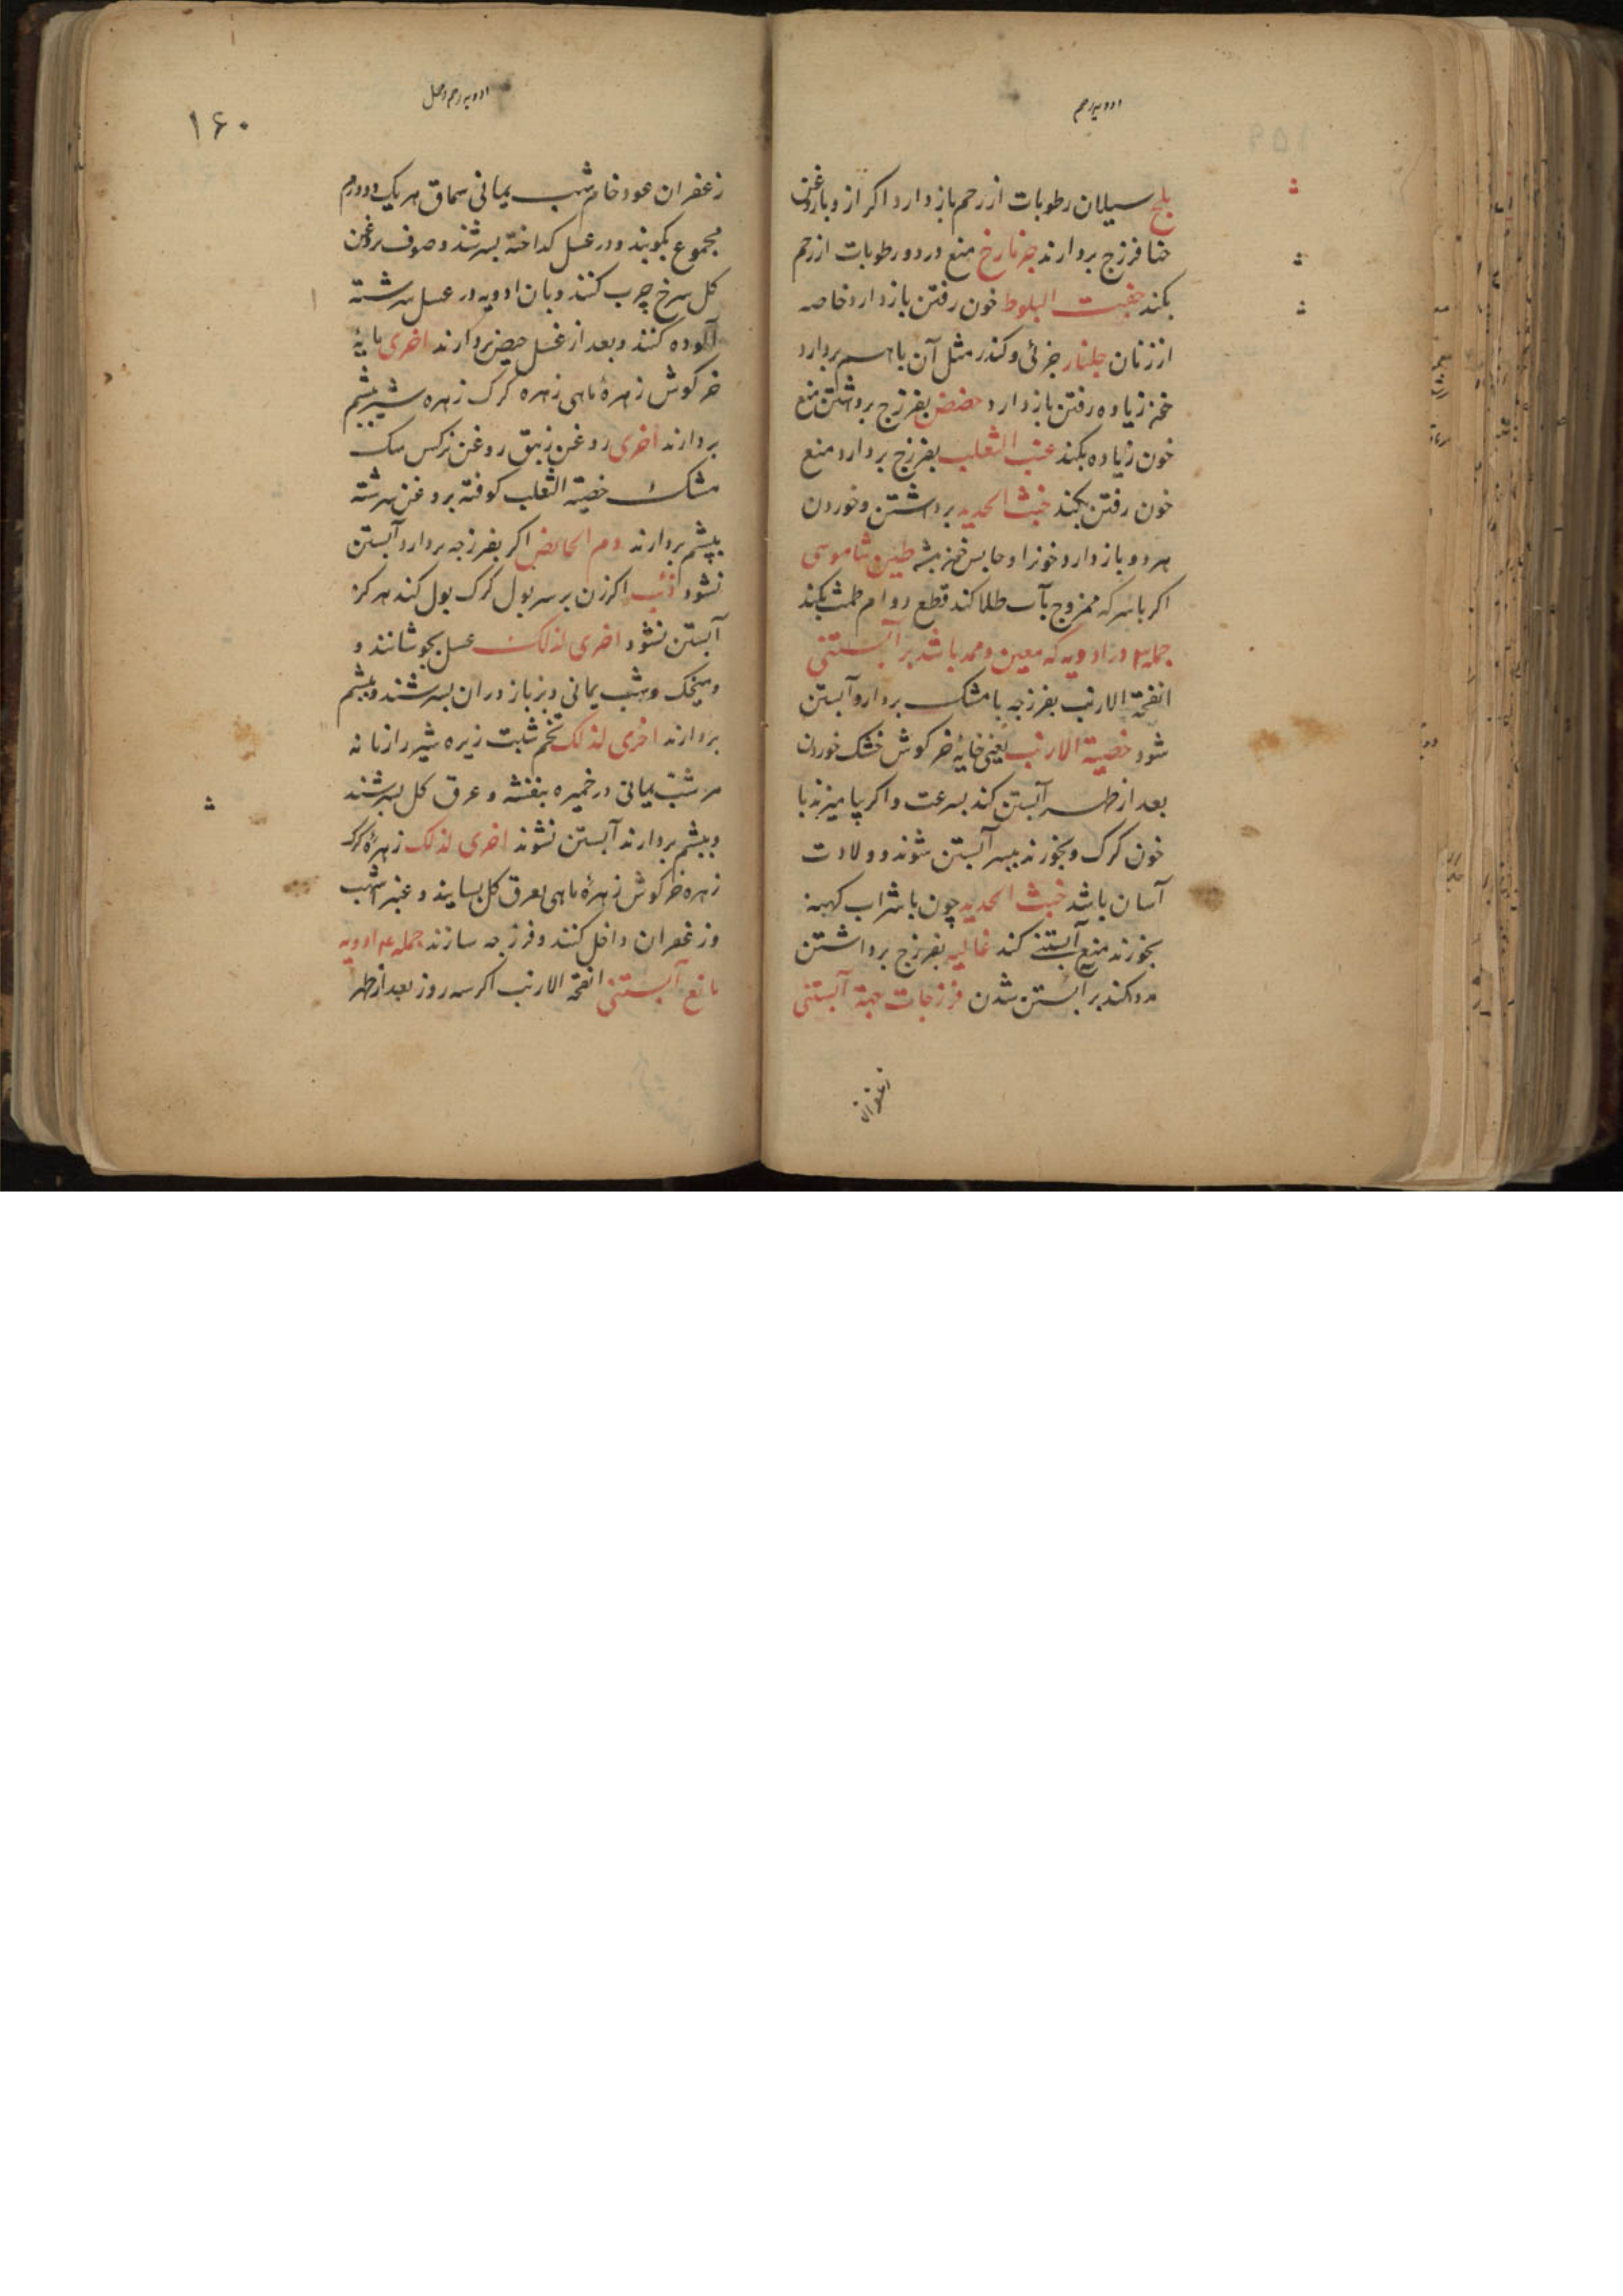 ادویه رحم
بلح سیلان رطوبات از رحم باز دارد اکر ازو با روغن
حنا فرزج بردارند جزنارخ منع درد و رطوبات از رحم
بکند جفت البلوط خون رفتن باز دارد خاصه
از زنان جلنار جزئی و کندر مثل آن باهم بردارد
زیاده رفتن باز دارد حضض بفرزج برداشتن منع
خون زیاده بکند عنب الثعلب بفرزج بردارد منع
خون رفتن بکند خبث الحدید برداشتن و خوردن
هردو باز دارد خونرا و حابس طین شاموسی
اکر با سرکه ممزوج بآب طلا کند قطع دوام طمث بکند
جمله ۳ در ادویه که معین و ممد باشد بر آبستنی
انفحة الارنب بفرزجه با مشک بردارد آبستن
شود خصیة الارنب یعنی خایه خرکوش خشک خوردن
بعد از طهر آبستن کند بسرعت و اکر بیامیزند با
خون کرک و بخورند بپسر آبستن شوند و ولادت
آسان باشد خبث الحدید چون با شراب کهنه
بخورند منع آبستنی کند غالیه بفرزج برداشتن
مدد کند بر آبستن شدن فرزجات جهة آبستنی
زعفران
ادویه رحم و حمل
۱۶۰
زعفران عود خام شب یمانی سماق هر یک دو درم
مجموع بکوبند و در عسل کداخته بسرشند و صوف بروغن
کل سرخ چرب کنند و بان ادویه در عسل سرشته
آلوده کنند و بعد از غسل حیض بردارند اخری مایه
خرکوش زهره ماهی زهره کرک زهره شیر بپشم
بردارند اخری روغن زنبق روغن نرکس سک
مشک خصیة الثعلب کوفته بروغن سرشته
بپشم بردارند دم الحائض اکر بفرزجه بردارد آبستن
نشود ذئب اکر زن بر سر بول کرک بول کند هرکز
آبستن نشود اخری لذلک عسل بجوشانند و
و میخک و شب یمانی و بزباز دران بسرشند و بپشم
بردارند اخری لذلک تخم شبت زیره شیر رازیانه
مر شب یمانی در خمیره بنفشه و عرق کل بسرشند
و بپشم بردارند آبستن نشوند اخری لذلک زهره کرک
زهره خرکوش زهره ماهی بعرق کل بسایند و عنبر اشهب
و زعفران داخل کنند و فرزجه سازند جمله ۴ ادویه
مانع آبستنی انفحة الارنب اکر سه روز بعد از طهر